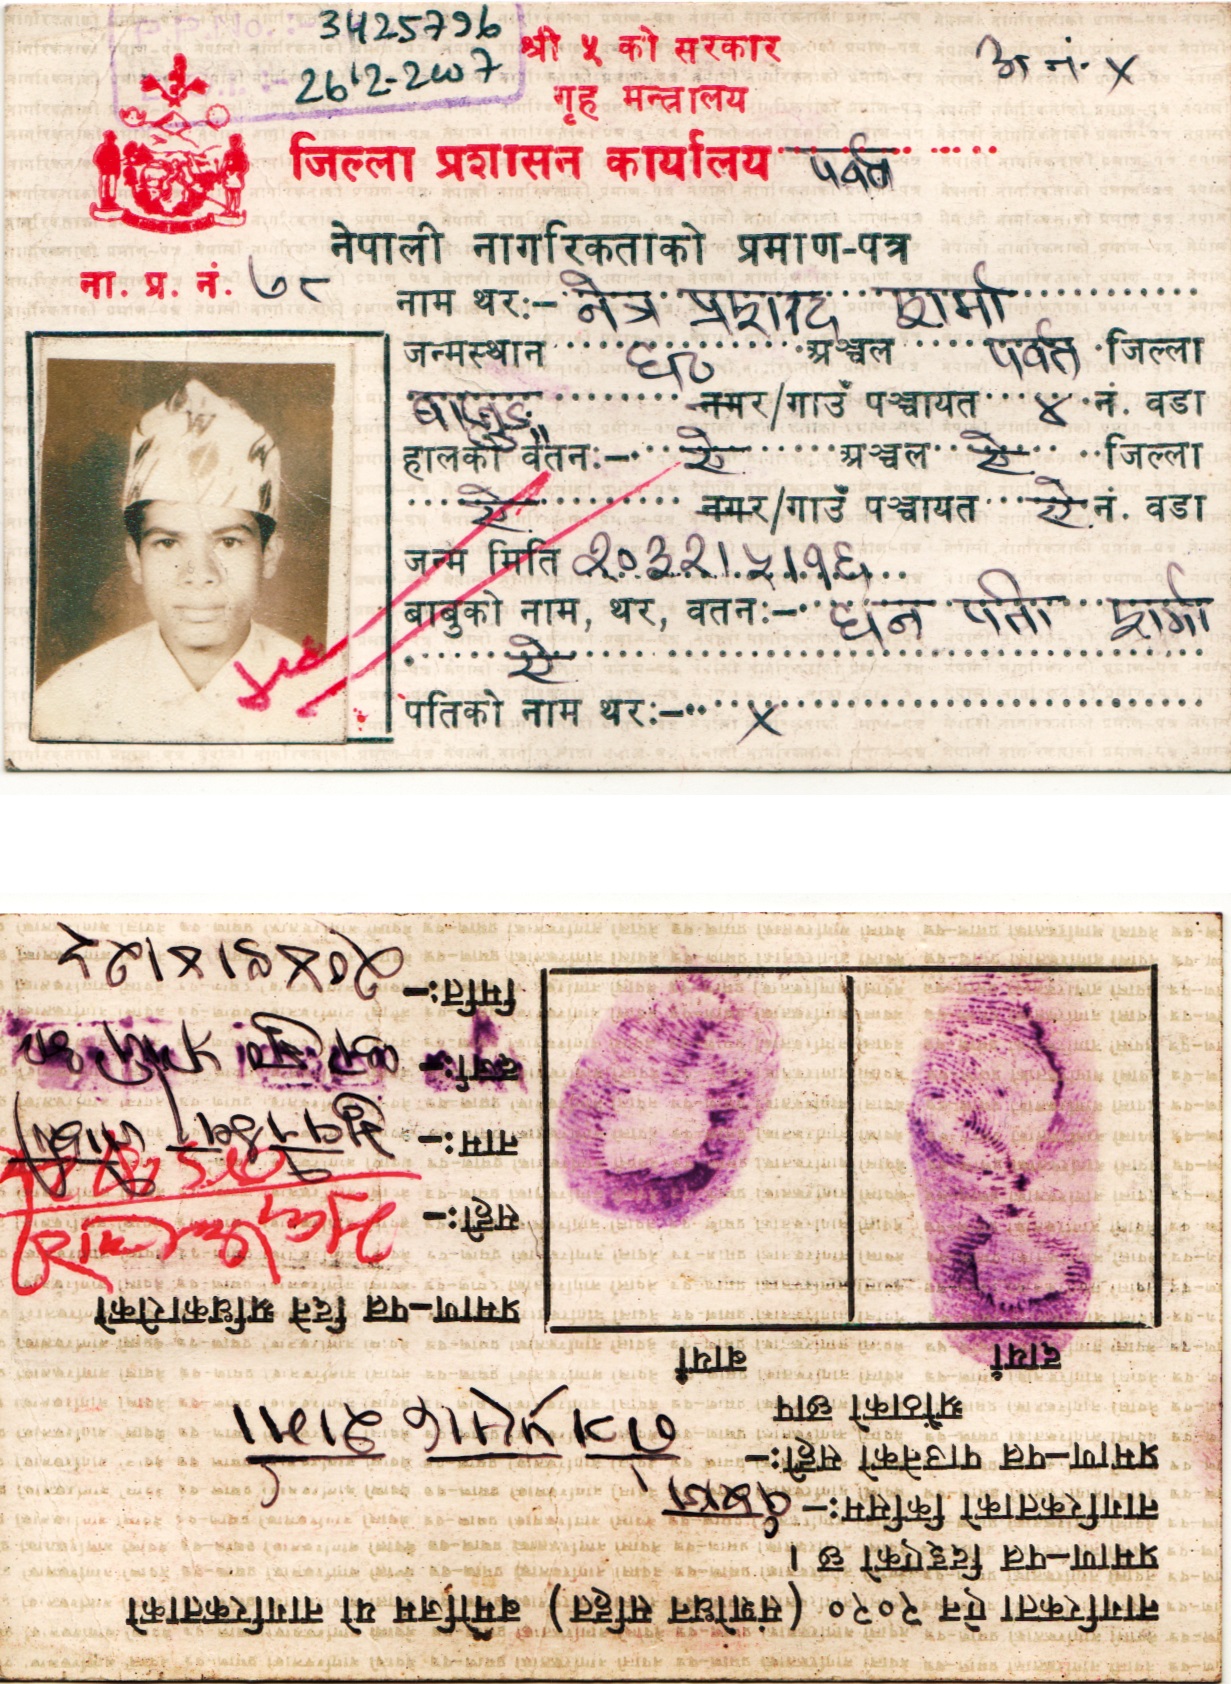 P.P.No. :- 3425796
26-12-2007
श्री ५ को सरकार
अ नं. X
गृह मन्त्रालय
जिल्ला प्रशासन कार्यालय पर्वत
नेपाली नागरिकताको प्रमाण-पत्र
ना. प्र. नं. ७८
नाम थर:- नेत्र प्रसाद शर्मा
जन्मस्थान ध⁠ अञ्चल पर्वत जिल्ला
नगर/गाउँ पञ्चायत ४ नं. वडा
हालको वतन:- ऐ अञ्चल ऐ जिल्ला
ऐ नगर/गाउँ पञ्चायत ऐ नं. वडा
जन्म मिति २०३२।५।१६
बाबुको नाम, थर, वतन:- धन पति शर्मा
ऐ
पतिको नाम थर:- X
नागरिकता ऐन २०२० (संशोधन सहित) बमोजिम यो नागरिकताको
प्रमाण-पत्र दिइएको छ ।
नागरिकताको किसिम:- वंशज
प्रमाण-पत्र पाउनेको सही:-
नेत्र प्रसाद शर्मा
औंठाको छाप
दायाँ
बायाँ
प्रमाण-पत्र दिने अधिकारीको
सही:-
नाम:-
दर्जा:-
मिति:- २०४९।४।२८